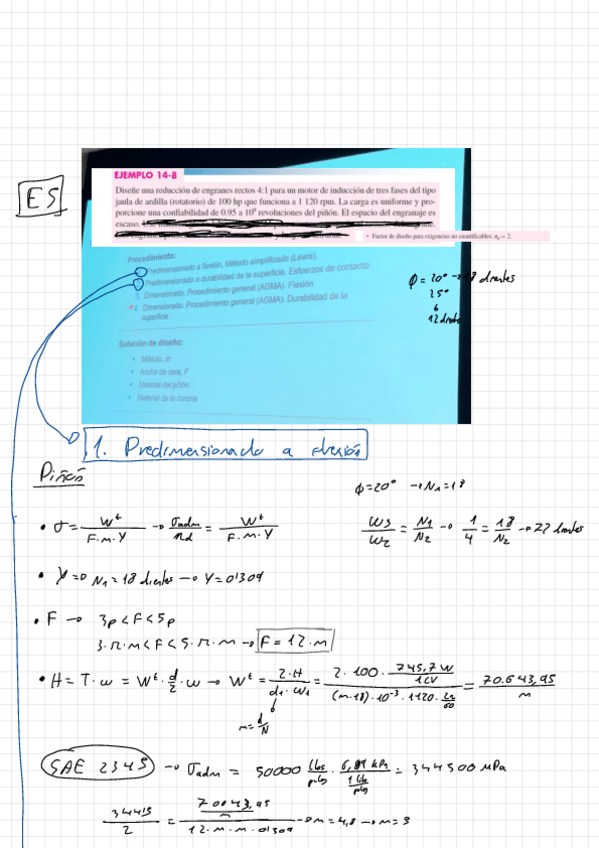 ES
EJEMPLO 14-8
Diseñe una reducción de engranes rectos 4:1 para un motor de inducción de tres fases del tipo
jaula de ardilla (rotatorio) de 100 hp que funciona a 1 120 rpm. La carga es uniforme y pro-
porcione una confiabilidad de 0.95 a 10⁹ revoluciones del piñón. El espacio del engranaje es
escaso.
• Factor de diseño para exigencias no cuantificables: n_d = 2.
Procedimiento:
Predimensionado a flexión. Método simplificado (Lewis).
Predimensionado a durabilidad de la superficie. Esfuerzos de contacto.
3. Dimensionado. Procedimiento general (AGMA). Flexión
4. Dimensionado. Procedimiento general (AGMA). Durabilidad de la
superficie
φ = 20° → 18 dientes
25°
↓
12 dientes
Solución de diseño:
• Módulo, m
• Ancho de cara, F
• Material del piñón
• Material de la corona
1. Predimensionado a flexión
Piñón
φ=20° → N₁=18
• σ = W^t / F.m.Y → σadm / nd = W^t / F.m.Y
ω3 / ω2 = N1 / N2 → 1/4 = 18/N2 → 72 dientes
• Y => N₁ = 18 dientes → Y = 0'309
• F → 3p < F < 5p
3·π·m < F < 5·π·m → F = 12·m
• H = T·ω = W^t · d/2 · ω → W^t = 2·H / d₁·ω₁ = 2·100· 745,7 W / 1CV / (m·18)·10⁻³·1120· 2π/60 = 70.643,95 / m
m = d/N
SAE 2345 → σadm = 50000 lbs/pulg · 6,89 kPa / 1 lb/pulg = 344500 kPa
344'5 / 2 = 70643,95/m / 12·m·m·0'309 → m = 4,8 → m = 5